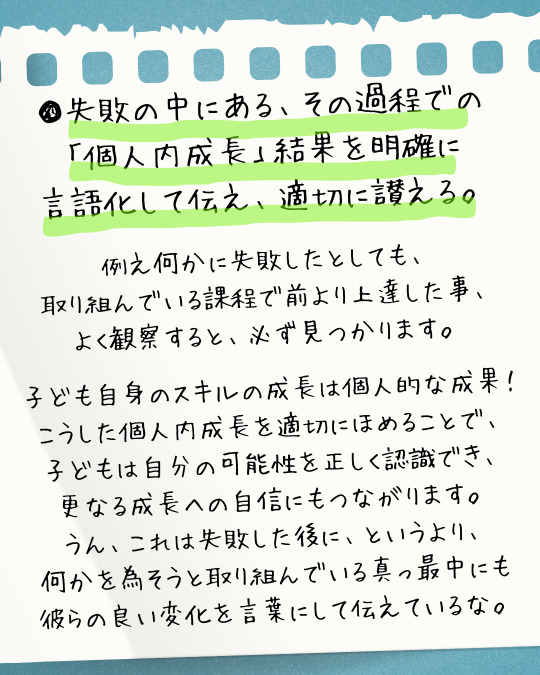 ❿失敗の中にある、その過程での
「個人内成長」結果を明確に
言語化して伝え、適切に讃える。
例え何かに失敗したとしても、
取り組んでいる課程で前より上達した事、
よく観察すると、必ず見つかります。
子ども自身のスキルの成長は個人的な成果！
こうした個人内成長を適切にほめることで、
子どもは自分の可能性を正しく認識でき、
更なる成長への自信にもつながります。
うん、これは失敗した後に、というより、
何かを為そうと取り組んでいる真っ最中にも
彼らの良い変化を言葉にして伝えているな。